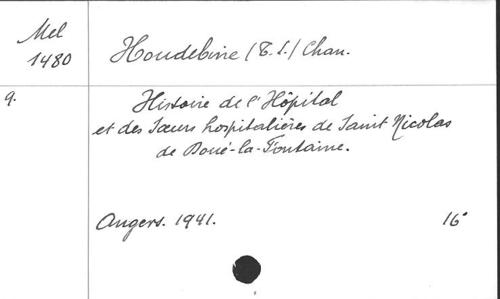 Mel
1480
Houdebine (T. L.) Chan.
9.
Histoire de l'Hôpital
et des Sœurs hospitalières de Saint Nicolas
de Doué-la-Fontaine.
Angers. 1941.
16°